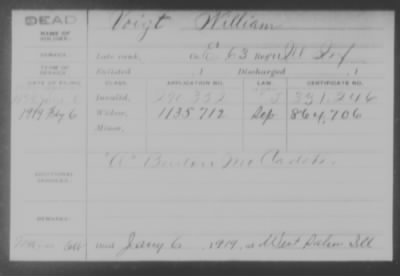 DEAD Voigt William
NAME OF SOLDIER:
SERVICE: Late rank, Co. E. 63 Reg't Ill Inf
TERM OF SERVICE: Enlisted , 1 Discharged , 1
DATE OF FILING CLASS. APPLICATION NO. LAW CERTIFICATE NO.
Invalid,
1919 Feby 6 Widow, 1135 712 Sep 864,706
Minor,
"A"
ADDITIONAL SERVICES:
REMARKS:
Died Jany 6, 1919, at West Salem Ill